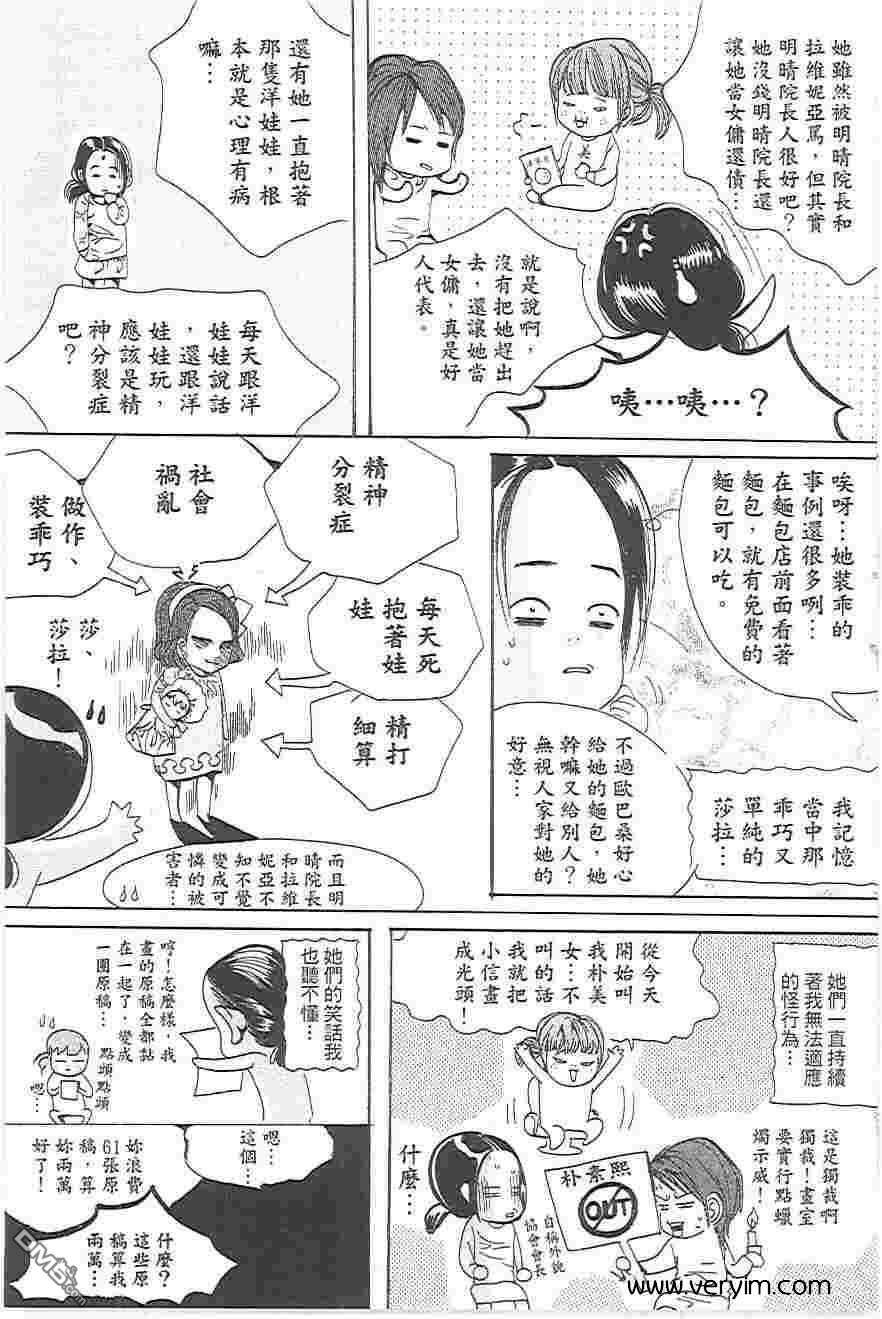 她雖然被明晴院長和
拉維妮亞罵，但其實
明晴院長人很好吧？
她沒錢明晴院長還
讓她當女傭還債…
就是說啊，
沒有把她趕出
去，還讓她當
女傭，真是好
人代表。
咦…咦…？
還有她一直抱著
那隻洋娃娃，根
本就是心理有病
嘛…
每天跟洋
娃娃說話
，還跟洋
娃娃玩，
應該是精
神分裂症
吧？
唉呀…她裝乖的
事例還很多咧…
在麵包店前面看著
麵包，就有免費的
麵包可以吃。
不過歐巴桑好心
給她的麵包，她
幹嘛又給別人？
無視人家對她的
好意…
我記憶
當中那
乖巧又
單純的
莎拉…
精神
分裂症
社會
禍亂
做作、
裝乖巧
每天死
抱著娃
娃
精打
細算
莎、
莎拉！
而且明
晴院長
和拉維
妮亞不
知不覺
變成可
憐的被
害者…
她們一直持續
著我無法適應
的怪行為…
從今天
開始叫
我朴美
女…不
叫的話
我就把
小信畫
成光頭！
這是獨裁啊
獨裁！畫室
要實行點蠟
燭示威！
什麼…
朴素熙
OUT
自稱外貌
協會會長
她們的笑話我
也聽不懂…
唷！怎麼樣，我
畫的原稿全都黏
在一起了，變成
一團原稿…
點頭點頭
嗯…
嗯…
這個…
妳浪費
61張原
稿，算
妳兩萬
好了！
什麼？
這些原
稿算我
兩萬…
www.veryim.com